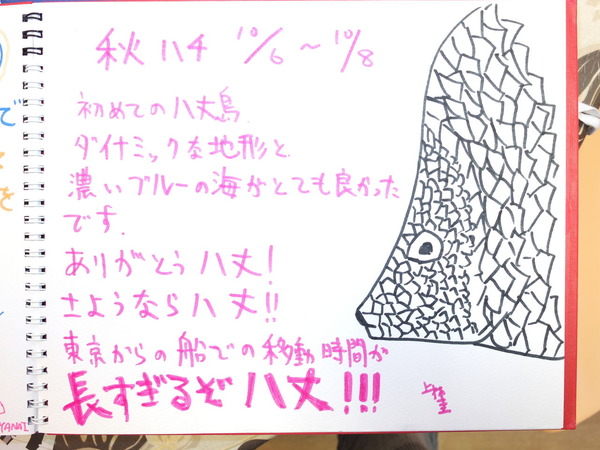 秋ハチ 10/6〜10/8
初めての八丈島.
ダイナミックな地形と.
濃いブルーの海がとても良かった
です.
ありがとう八丈!
さようなら八丈!!
東京からの船での移動時間が
長すぎるぞ八丈!!!
で
を
YANAI